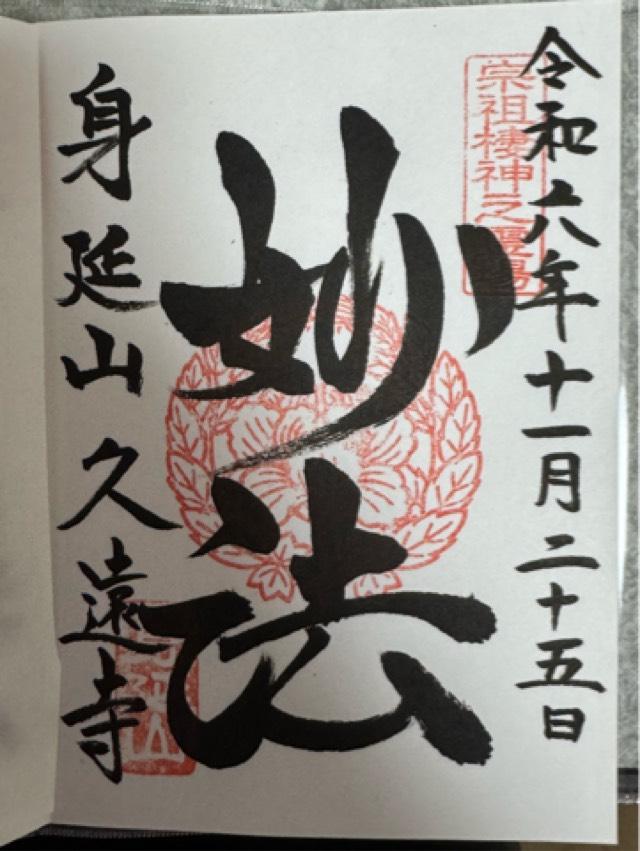 令和六年十一月二十五日
宗祖棲神之霊場
妙法
身延山久遠寺